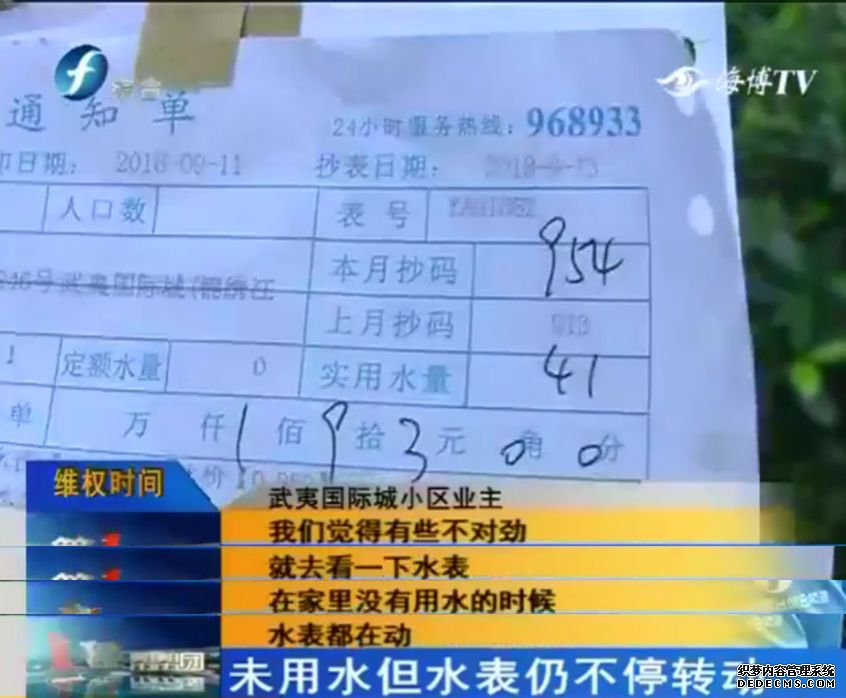 综合
海博TV
通知单
24小时服务热线：968933
印日期：2018-09-11 抄表日期：
人口数 表号
本月抄码 954
武夷国际城(锦绣江
上月抄码 913
1 定额水量 0 实用水量 41
单 万 仟 1 佰 9 拾 3 元 0 角 0 分
维权时间
武夷国际城小区业主
我们觉得有些不对劲
就去看一下水表
在家里没有用水的时候
水表都在动
帮帮团
未用水但水表仍不停转动
织梦内容管理系统
DEDECMS.COM